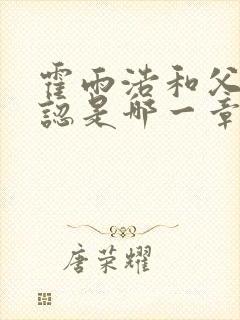 霍雨浩和父
認是哪一章
唐荣耀